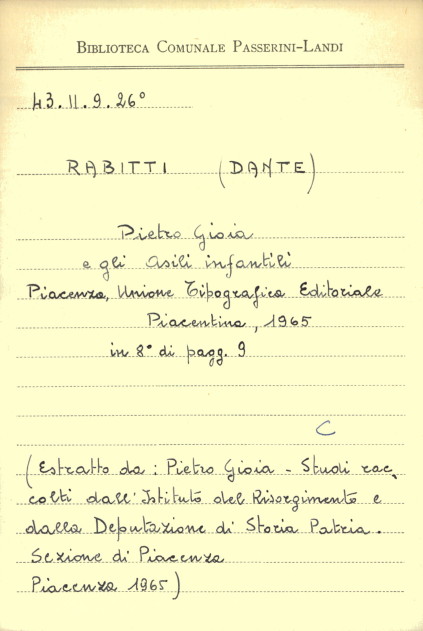 BIBLIOTECA COMUNALE PASSERINI-LANDI
43.II.9.26°
RABITTI (DANTE)
Pietro Gioia
e gli asili infantili
Piacenza, Unione Tipografica Editoriale
Piacentina, 1965
in 8° di pagg. 9
C
(Estratto da: Pietro Gioia - Studi rac-
colti dall'Istituto del Risorgimento e
dalla Deputazione di Storia Patria.
Sezione di Piacenza
Piacenza 1965)